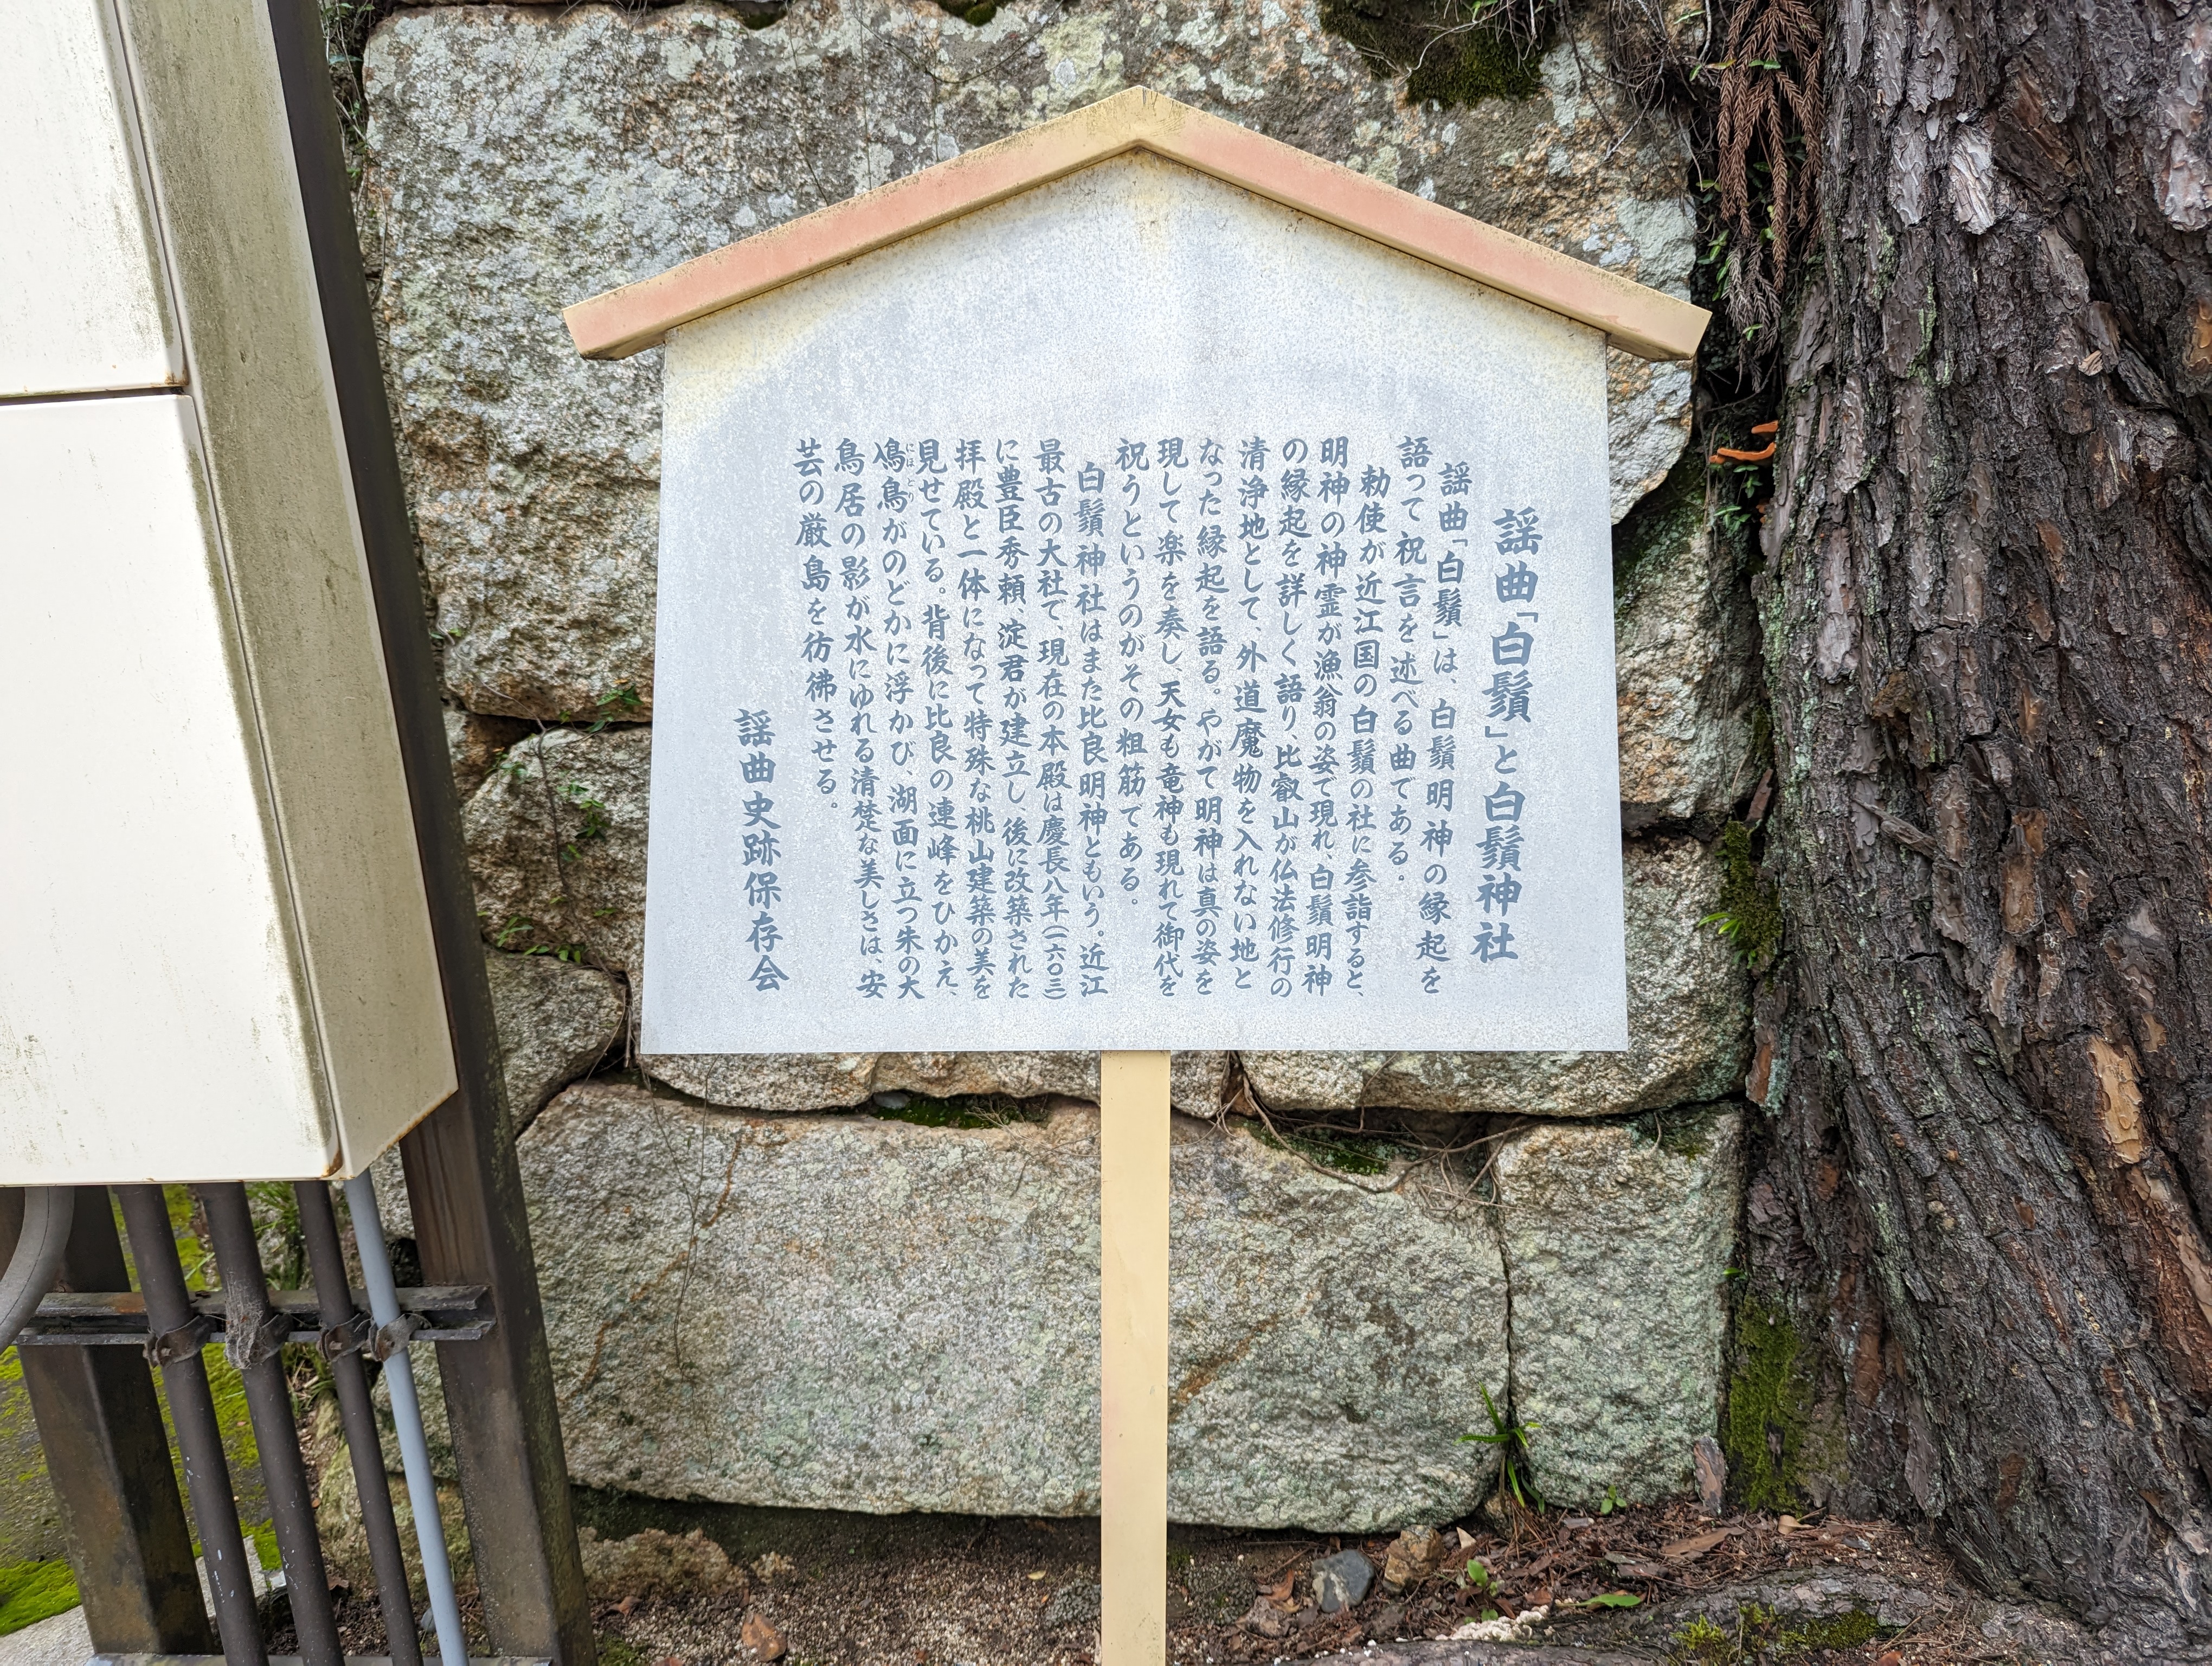 謡曲「白鬚」と白鬚神社
謡曲「白鬚」は、白鬚明神の縁起を
語って祝言を述べる曲である。
勅使が近江国の白鬚の社に参詣すると、
明神の神霊が漁翁の姿で現れ、白鬚明神
の縁起を詳しく語り、比叡山が仏法修行の
清浄地として、外道魔物を入れない地と
なった縁起を語る。やがて明神は真の姿を
現して楽を奏し、天女も竜神も現れて御代を
祝うというのがその粗筋である。
白鬚神社はまた比良明神ともいう。近江
最古の大社で、現在の本殿は慶長八年(一六〇三)
に豊臣秀頼、淀君が建立し、後に改築された
拝殿と一体になって特殊な桃山建築の美を
見せている。背後に比良の連峰をひかえ、
鳰鳥がのどかに浮かび、湖面に立つ朱の大
にほどり
鳥居の影が水にゆれる清楚な美しさは、安
芸の厳島を彷彿させる。
謡曲史跡保存会